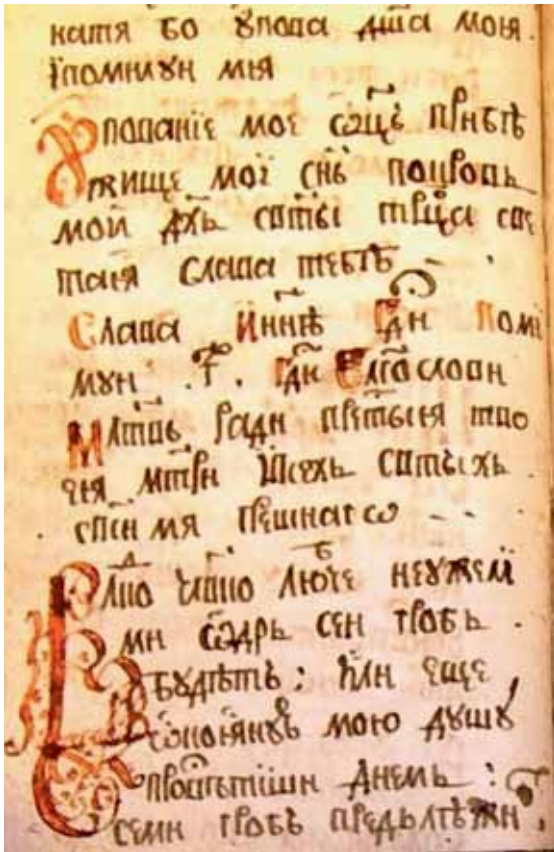 катя бо ѹпова дш҃а моя.
їпомилꙋи мя
Ѹпованїе мое ѡц҃ъ прибѣ
жище мой сн҃ъ покровъ
мой дх҃ъ ст҃ы тро҃ца све
тая слава тебѣ
Слава Иннѣ Гд҃и Поми
лꙋи .г҃. Гд҃и Бл҃гослови
Мл҃твъ ради преч҃тыя тво
ея мт҃ри ївсехъ свт҃ыхъ
сп҃си мя грешнаго
Вл҃ко чл҃ко любче неꙋжели
ми ѡдръ сеи гробъ
бꙋдетъ: или еще
ѡкоянꙋю мою дꙋшꙋ
просветиши днемъ :
семи гробъ предълѣжи